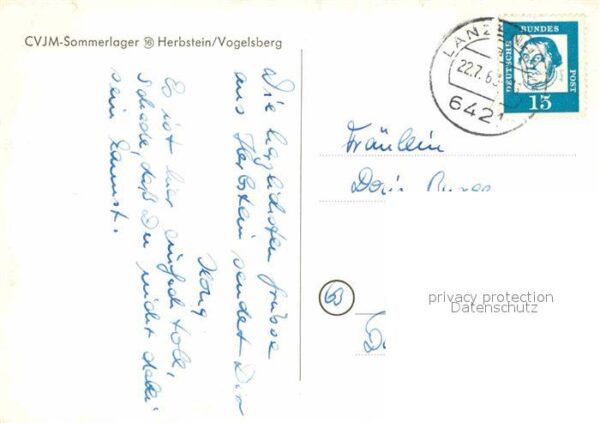 CVJM-Sommerlager ⑯ Herbstein/Vogelsberg
Die herzlichsten Grüsse
aus Herbstein sendet Dir
Es ist hier einfach toll,
schade, daß Du nicht dabei
sein kannst.
LANZ
22.7.6
6421
DEUTSCHE BUNDES POST
15
Fräulein
privacy protection
Datenschutz